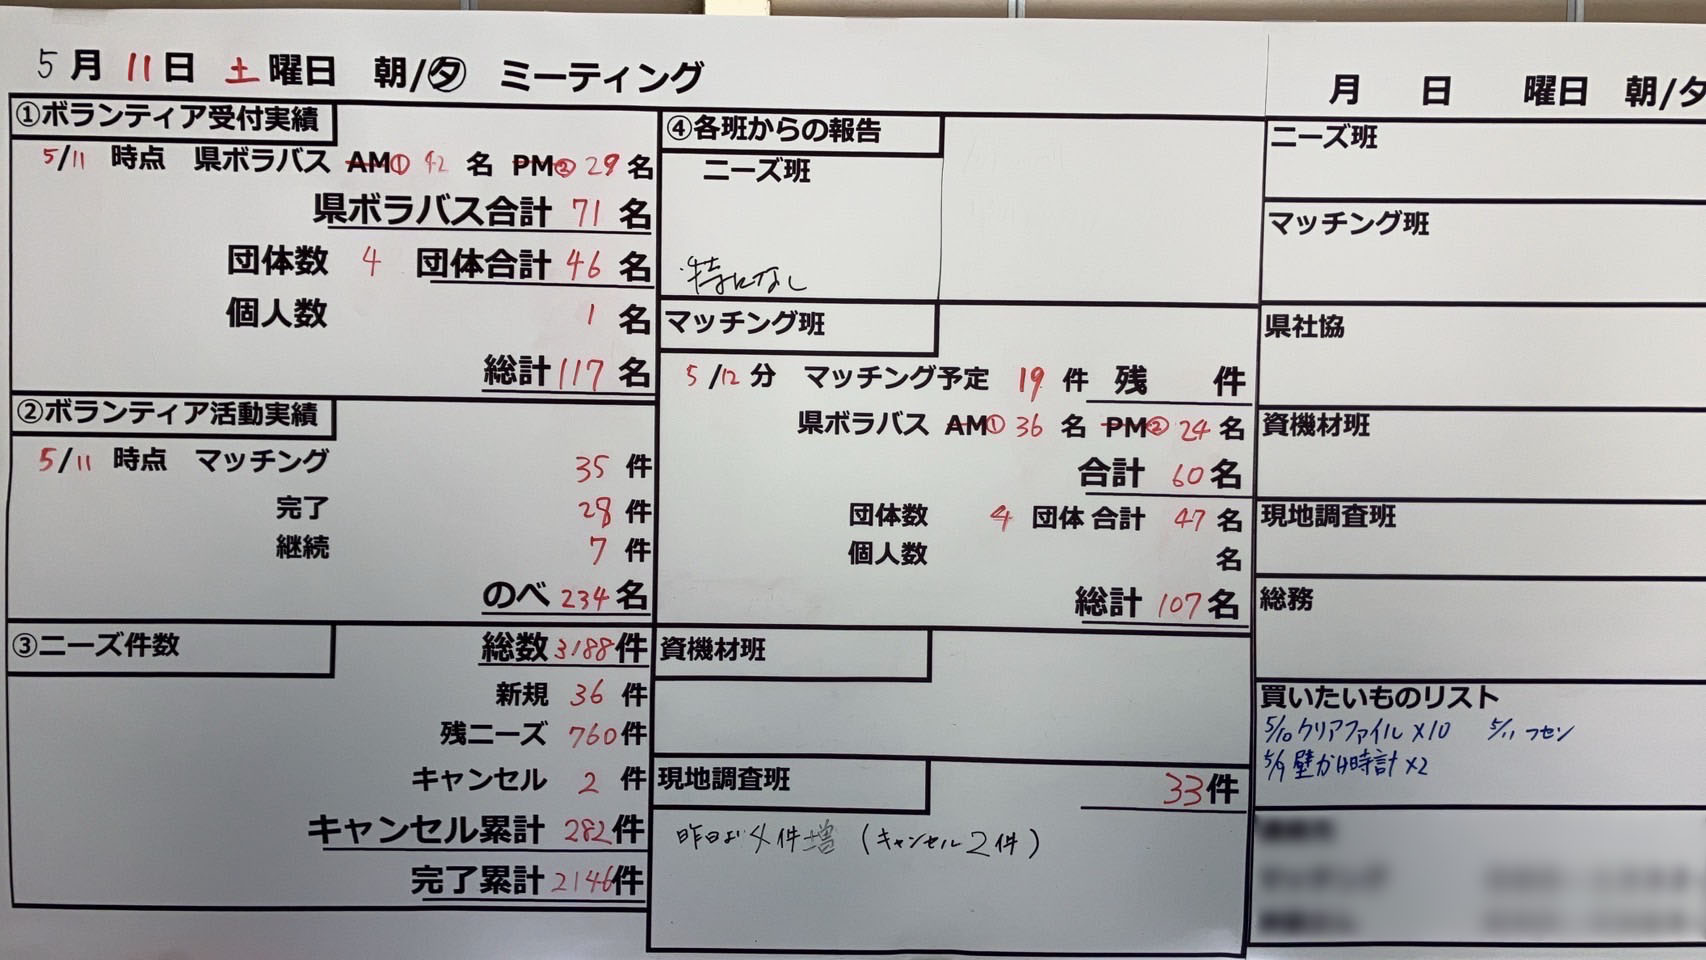 5月11日 土曜日 朝/夕 ミーティング
①ボランティア受付実績
5/11 時点 県ボラバス AM① 42名 PM② 29名
県ボラバス合計 71名
団体数 4 団体合計 46名
個人数 1名
総計 117名
②ボランティア活動実績
5/11 時点 マッチング 35件
完了 28件
継続 7件
のべ 234名
③ニーズ件数
総数 3188件
新規 36件
残ニーズ 760件
キャンセル 2件
キャンセル累計 282件
完了累計 2146件
④各班からの報告
ニーズ班
特になし
マッチング班
5/12分 マッチング予定 19件 残 件
県ボラバス AM① 36名 PM② 24名
合計 60名
団体数 4 団体 合計 47名
個人数 名
総計 107名
資機材班
現地調査班 33件
昨日より4件増 (キャンセル2件)
月 日 曜日 朝/夕
ニーズ班
マッチング班
県社協
資機材班
現地調査班
総務
買いたいものリスト
5/10 クリアファイル×10 5/11 フセン
5/9 壁かけ時計×2